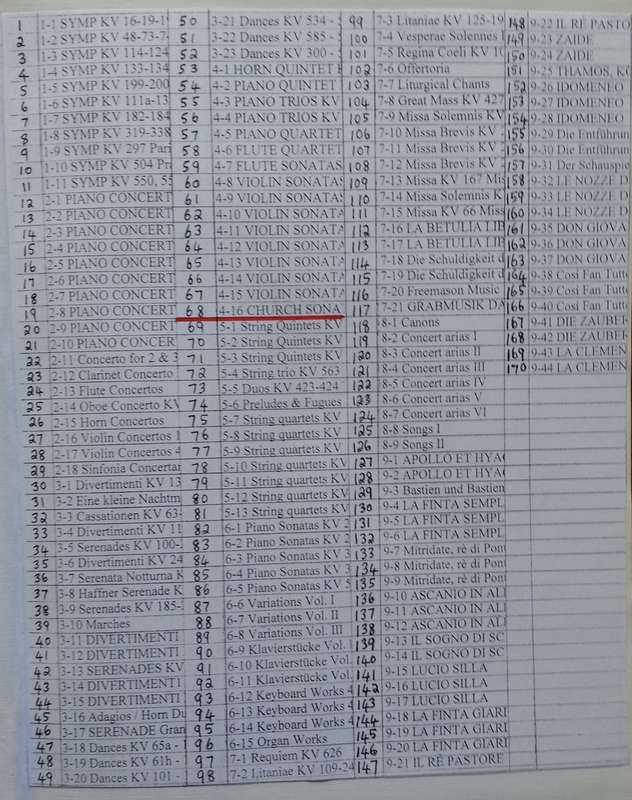 1 1-1 SYMP KV 16-19-1
2 1-2 SYMP KV 48-73-7
3 1-3 SYMP KV 114-124
4 1-4 SYMP KV 133-134
5 1-5 SYMP KV 199-200
6 1-6 SYMP KV 111a-13
7 1-7 SYMP KV 182-184
8 1-8 SYMP KV 319-338
9 1-9 SYMP KV 297 Pari
10 1-10 SYMP KV 504 Pr
11 1-11 SYMP KV 550, 55
12 2-1 PIANO CONCERT
13 2-2 PIANO CONCERT
14 2-3 PIANO CONCERT
15 2-4 PIANO CONCERT
16 2-5 PIANO CONCERT
17 2-6 PIANO CONCERT
18 2-7 PIANO CONCERT
19 2-8 PIANO CONCERT
20 2-9 PIANO CONCERT
21 2-10 PIANO CONCER
22 2-11 Concerto for 2 & 3
23 2-12 Clarinet Concerto
24 2-13 Flute Concertos
25 2-14 Oboe Concerto KV
26 2-15 Horn Concertos
27 2-16 Violin Concertos 1
28 2-17 Violin Concertos 4
29 2-18 Sinfonia Concertan
30 3-1 Divertimenti KV 13
31 3-2 Eine kleine Nachtm
32 3-3 Cassationen KV 63-
33 3-4 Divertimenti KV 11
34 3-5 Serenades KV 100-
35 3-6 Divertimenti KV 24
36 3-7 Serenata Notturna K
37 3-8 Haffner Serenade K
38 3-9 Serenades KV 185-
39 3-10 Marches
40 3-11 DIVERTIMENTI
41 3-12 DIVERTIMENTI
42 3-13 SERENADES KV
43 3-14 DIVERTIMENTI
44 3-15 DIVERTIMENTI
45 3-16 Adagios / Horn Du
46 3-17 SERENADE Gran
47 3-18 Dances KV 65a -
48 3-19 Dances KV 61h -
49 3-20 Dances KV 101 -
50 3-21 Dances KV 534 -
51 3-22 Dances KV 585 -
52 3-23 Dances KV 300 -
53 4-1 HORN QUINTET
54 4-2 PIANO QUINTET
55 4-3 PIANO TRIOS KV
56 4-4 PIANO TRIOS KV
57 4-5 PIANO QUARTET
58 4-6 FLUTE QUARTET
59 4-7 FLUTE SONATAS
60 4-8 VIOLIN SONATAS
61 4-9 VIOLIN SONATAS
62 4-10 VIOLIN SONATA
63 4-11 VIOLIN SONATA
64 4-12 VIOLIN SONATA
65 4-13 VIOLIN SONATA
66 4-14 VIOLIN SONATA
67 4-15 VIOLIN SONATA
68 4-16 CHURCH SONA
69 5-1 String Quintets KV
70 5-2 String Quintets KV
71 5-3 String Quintets KV
72 5-4 String trio KV 563
73 5-5 Duos KV 423-424
74 5-6 Preludes & Fugues
75 5-7 String quartets KV
76 5-8 String quartets KV
77 5-9 String quartets KV
78 5-10 String quartets KV
79 5-11 String quartets KV
80 5-12 String quartets KV
81 5-13 String quartets KV
82 6-1 Piano Sonatas KV 2
83 6-2 Piano Sonatas KV
84 6-3 Piano Sonatas KV 3
85 6-4 Piano Sonatas KV 3
86 6-5 Piano Sonatas KV 5
87 6-6 Variations Vol. I
88 6-7 Variations Vol. II
89 6-8 Variations Vol. III
90 6-9 Klavierstücke Vol.
91 6-10 Klavierstücke Vol.
92 6-11 Klavierstücke Vol.
93 6-12 Keyboard Works
94 6-13 Keyboard Works
95 6-14 Keyboard Works
96 6-15 Organ Works
97 7-1 Requiem KV 626
98 7-2 Litaniae KV 109-24
99 7-3 Litaniae KV 125-19
100 7-4 Vesperae Solennes
101 7-5 Regina Coeli KV 10
102 7-6 Offertoria
103 7-7 Liturgical Chants
104 7-8 Great Mass KV 427
105 7-9 Missa Solemnis KV
106 7-10 Missa Brevis KV
107 7-11 Missa Brevis KV
108 7-12 Missa Brevis KV
109 7-13 Missa KV 167 Mis
110 7-14 Missa Solemnis K
111 7-15 Missa KV 66 Miss
112 7-16 LA BETULIA LIB
113 7-17 LA BETULIA LIB
114 7-18 Die Schuldigkeit d
115 7-19 Die Schuldigkeit d
116 7-20 Freemason Music
117 7-21 GRABMUSIK DA
118 8-1 Canons
119 8-2 Concert arias I
120 8-3 Concert arias II
121 8-4 Concert arias III
122 8-5 Concert arias IV
123 8-6 Concert arias V
124 8-7 Concert arias VI
125 8-8 Songs I
126 8-9 Songs II
127 9-1 APOLLO ET HYA
128 9-2 APOLLO ET HYA
129 9-3 Bastien und Bastien
130 9-4 LA FINTA SEMPL
131 9-5 LA FINTA SEMPL
132 9-6 LA FINTA SEMPL
133 9-7 Mitridate, rè di Pont
134 9-8 Mitridate, rè di Pont
135 9-9 Mitridate, rè di Pont
136 9-10 ASCANIO IN AL
137 9-11 ASCANIO IN AL
138 9-12 ASCANIO IN AL
139 9-13 IL SOGNO DI SC
140 9-14 IL SOGNO DI SC
141 9-15 LUCIO SILLA
142 9-16 LUCIO SILLA
143 9-17 LUCIO SILLA
144 9-18 LA FINTA GIARI
145 9-19 LA FINTA GIARI
146 9-20 LA FINTA GIARI
147 9-21 IL RÈ PASTORE
148 9-22 IL RÈ PASTOR
149 9-23 ZAIDE
150 9-24 ZAIDE
151 9-25 THAMOS, KÖ
152 9-26 IDOMENEO
153 9-27 IDOMENEO
154 9-28 IDOMENEO
155 9-29 Die Entführun
156 9-30 Die Entführun
157 9-31 Der Schauspie
158 9-32 LE NOZZE D
159 9-33 LE NOZZE D
160 9-34 LE NOZZE D
161 9-35 DON GIOVA
162 9-36 DON GIOVA
163 9-37 DON GIOVA
164 9-38 Cosi Fan Tutte
165 9-39 Cosi Fan Tutte
166 9-40 Cosi Fan Tutte
167 9-41 DIE ZAUBER
168 9-42 DIE ZAUBER
169 9-43 LA CLEMEN
170 9-44 LA CLEMEN